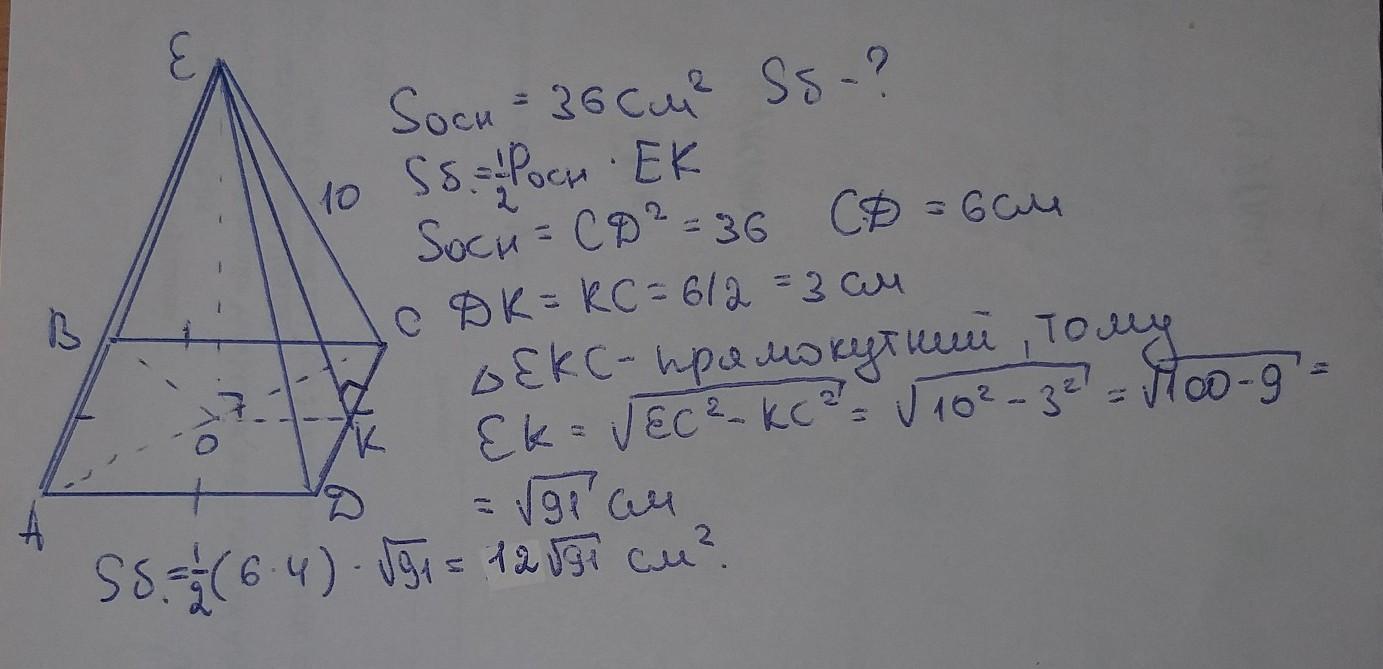 E
Sосн = 36 см² Sб - ?
Sб. = 1/2 Pосн · EK
10
Sосн = CD² = 36 CD = 6 см
B
C
DK = KC = 6/2 = 3 см
△EKC - прямокутний, тому
7
O
K
EK = √EC² - KC² = √10² - 3² = √100 - 9 =
= √91 см
A
D
Sб. = 1/2 (6 · 4) · √91 = 12√91 см².